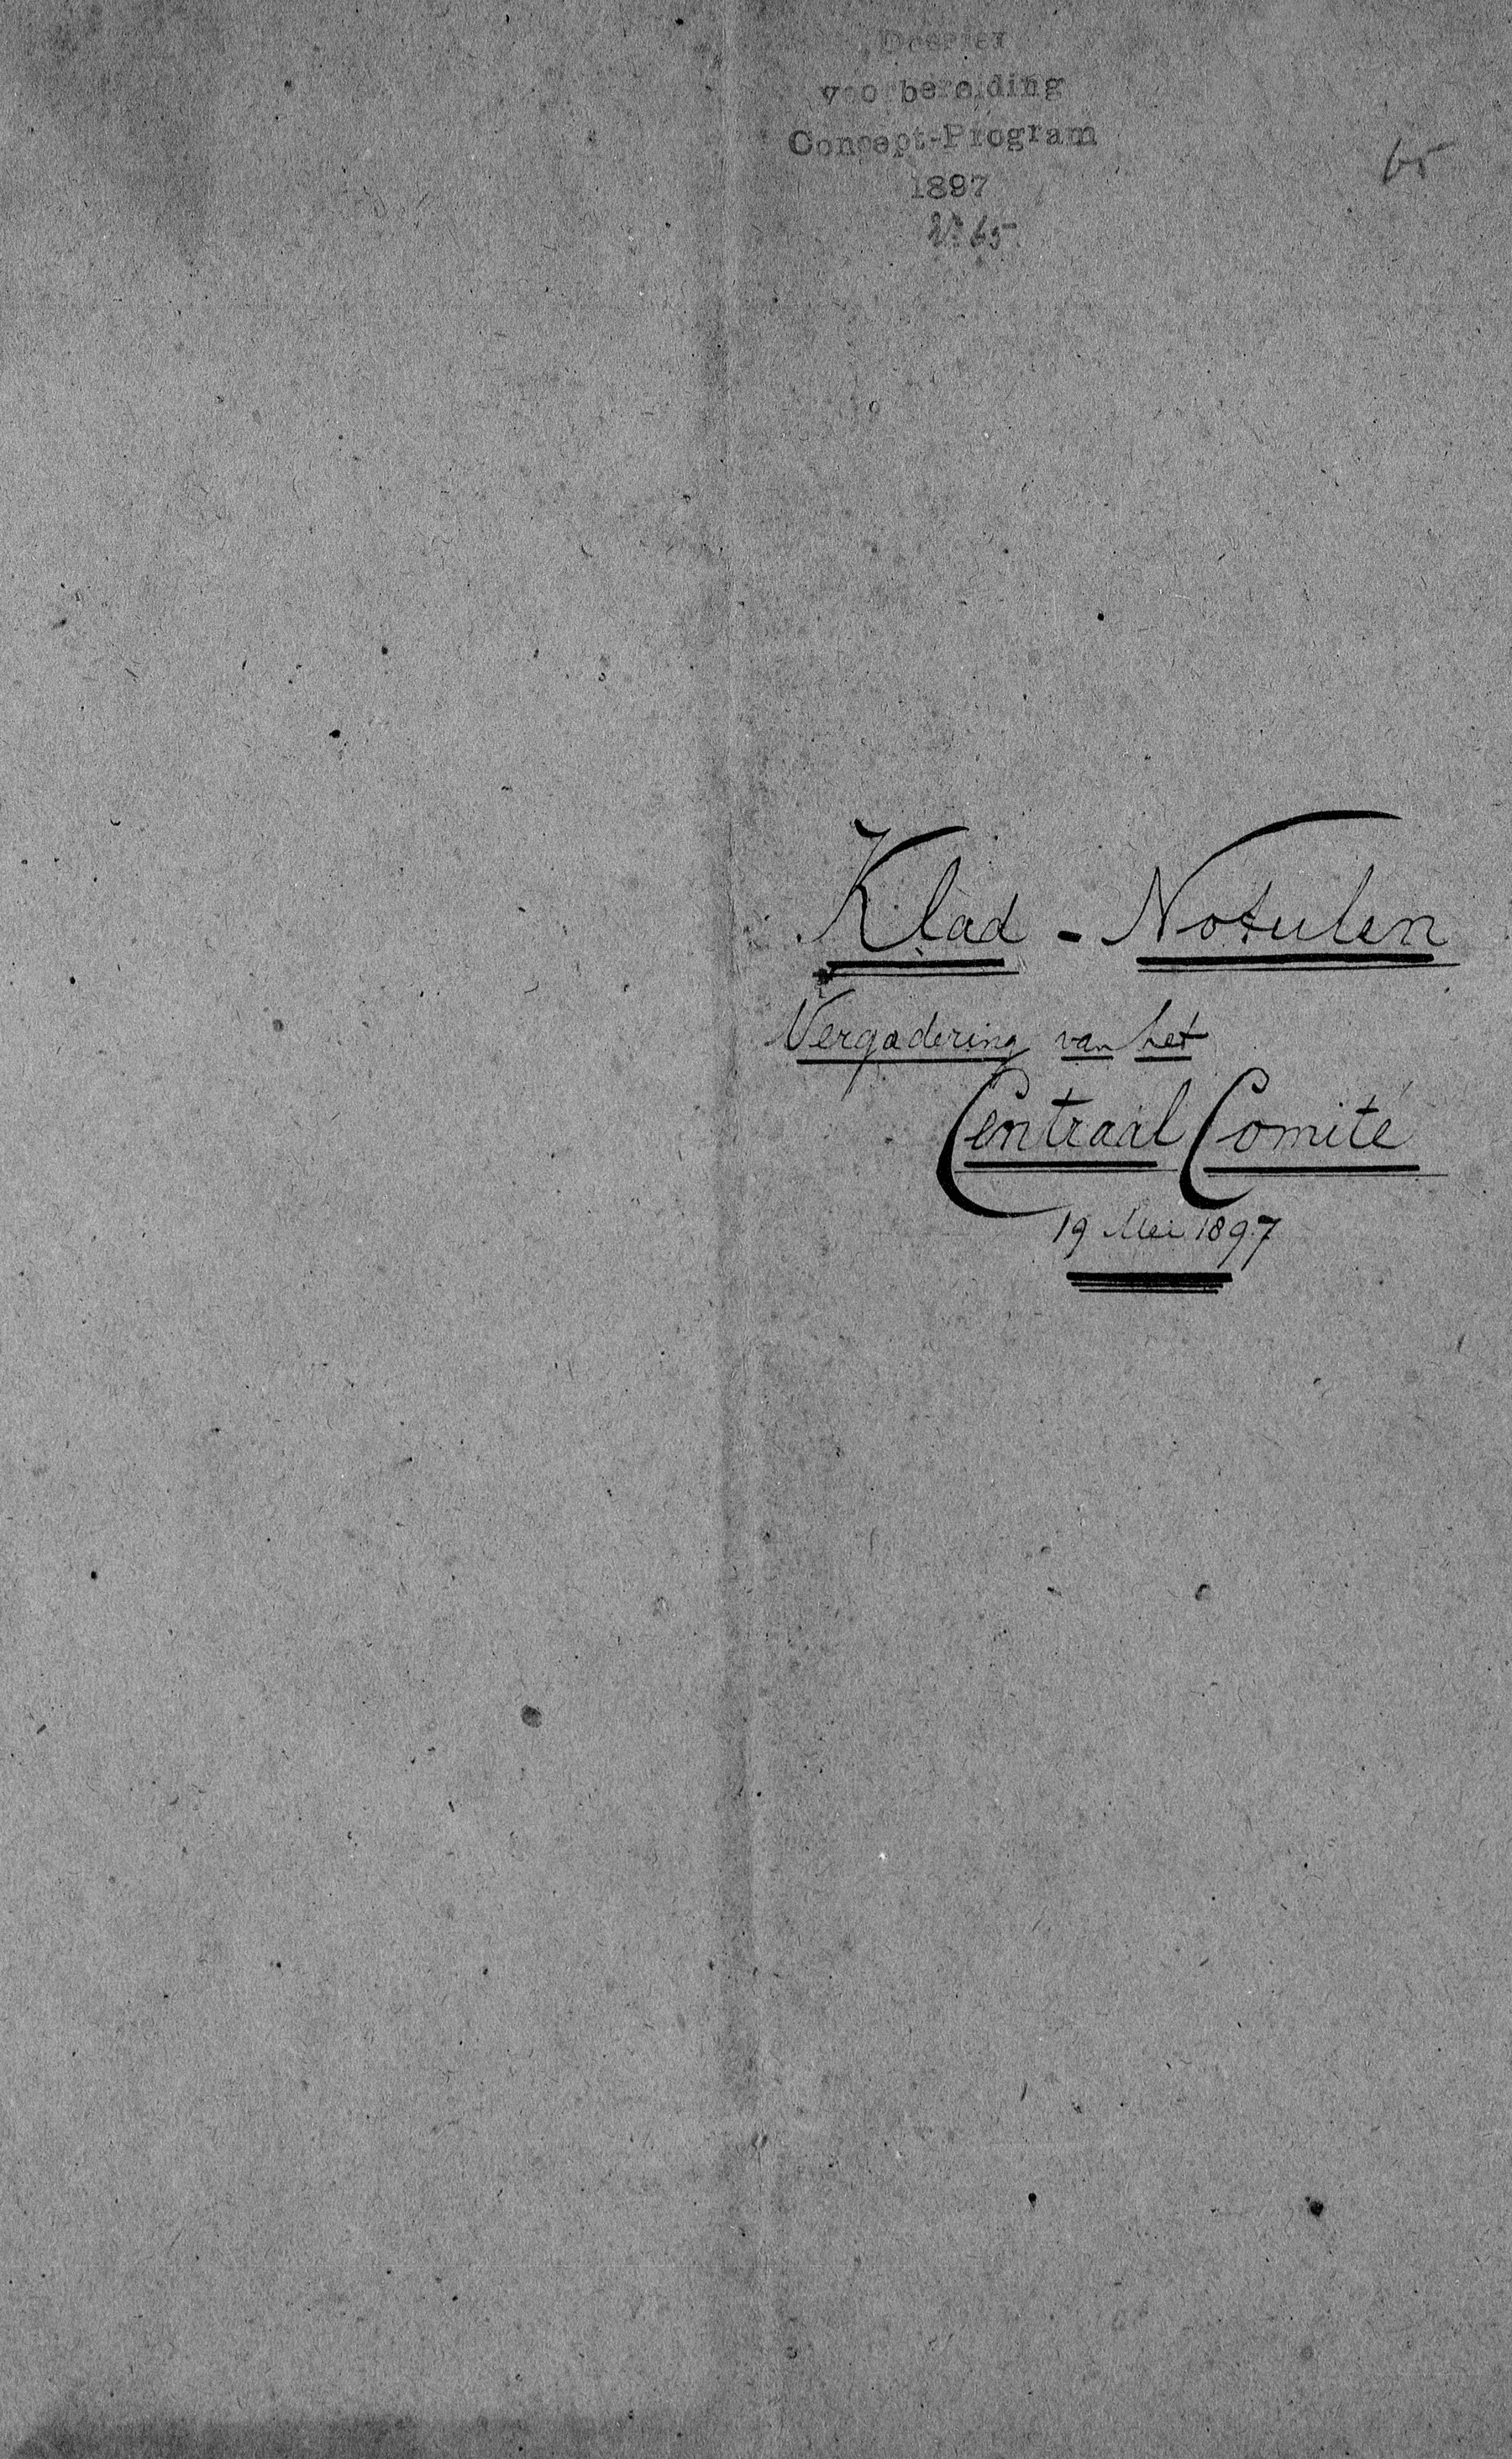 Dossier
voorbereiding
Concept-Program
1897
No. 65.
65
Klad - Notulen
Vergadering van het
Centraal Comité
19 Mei 1897